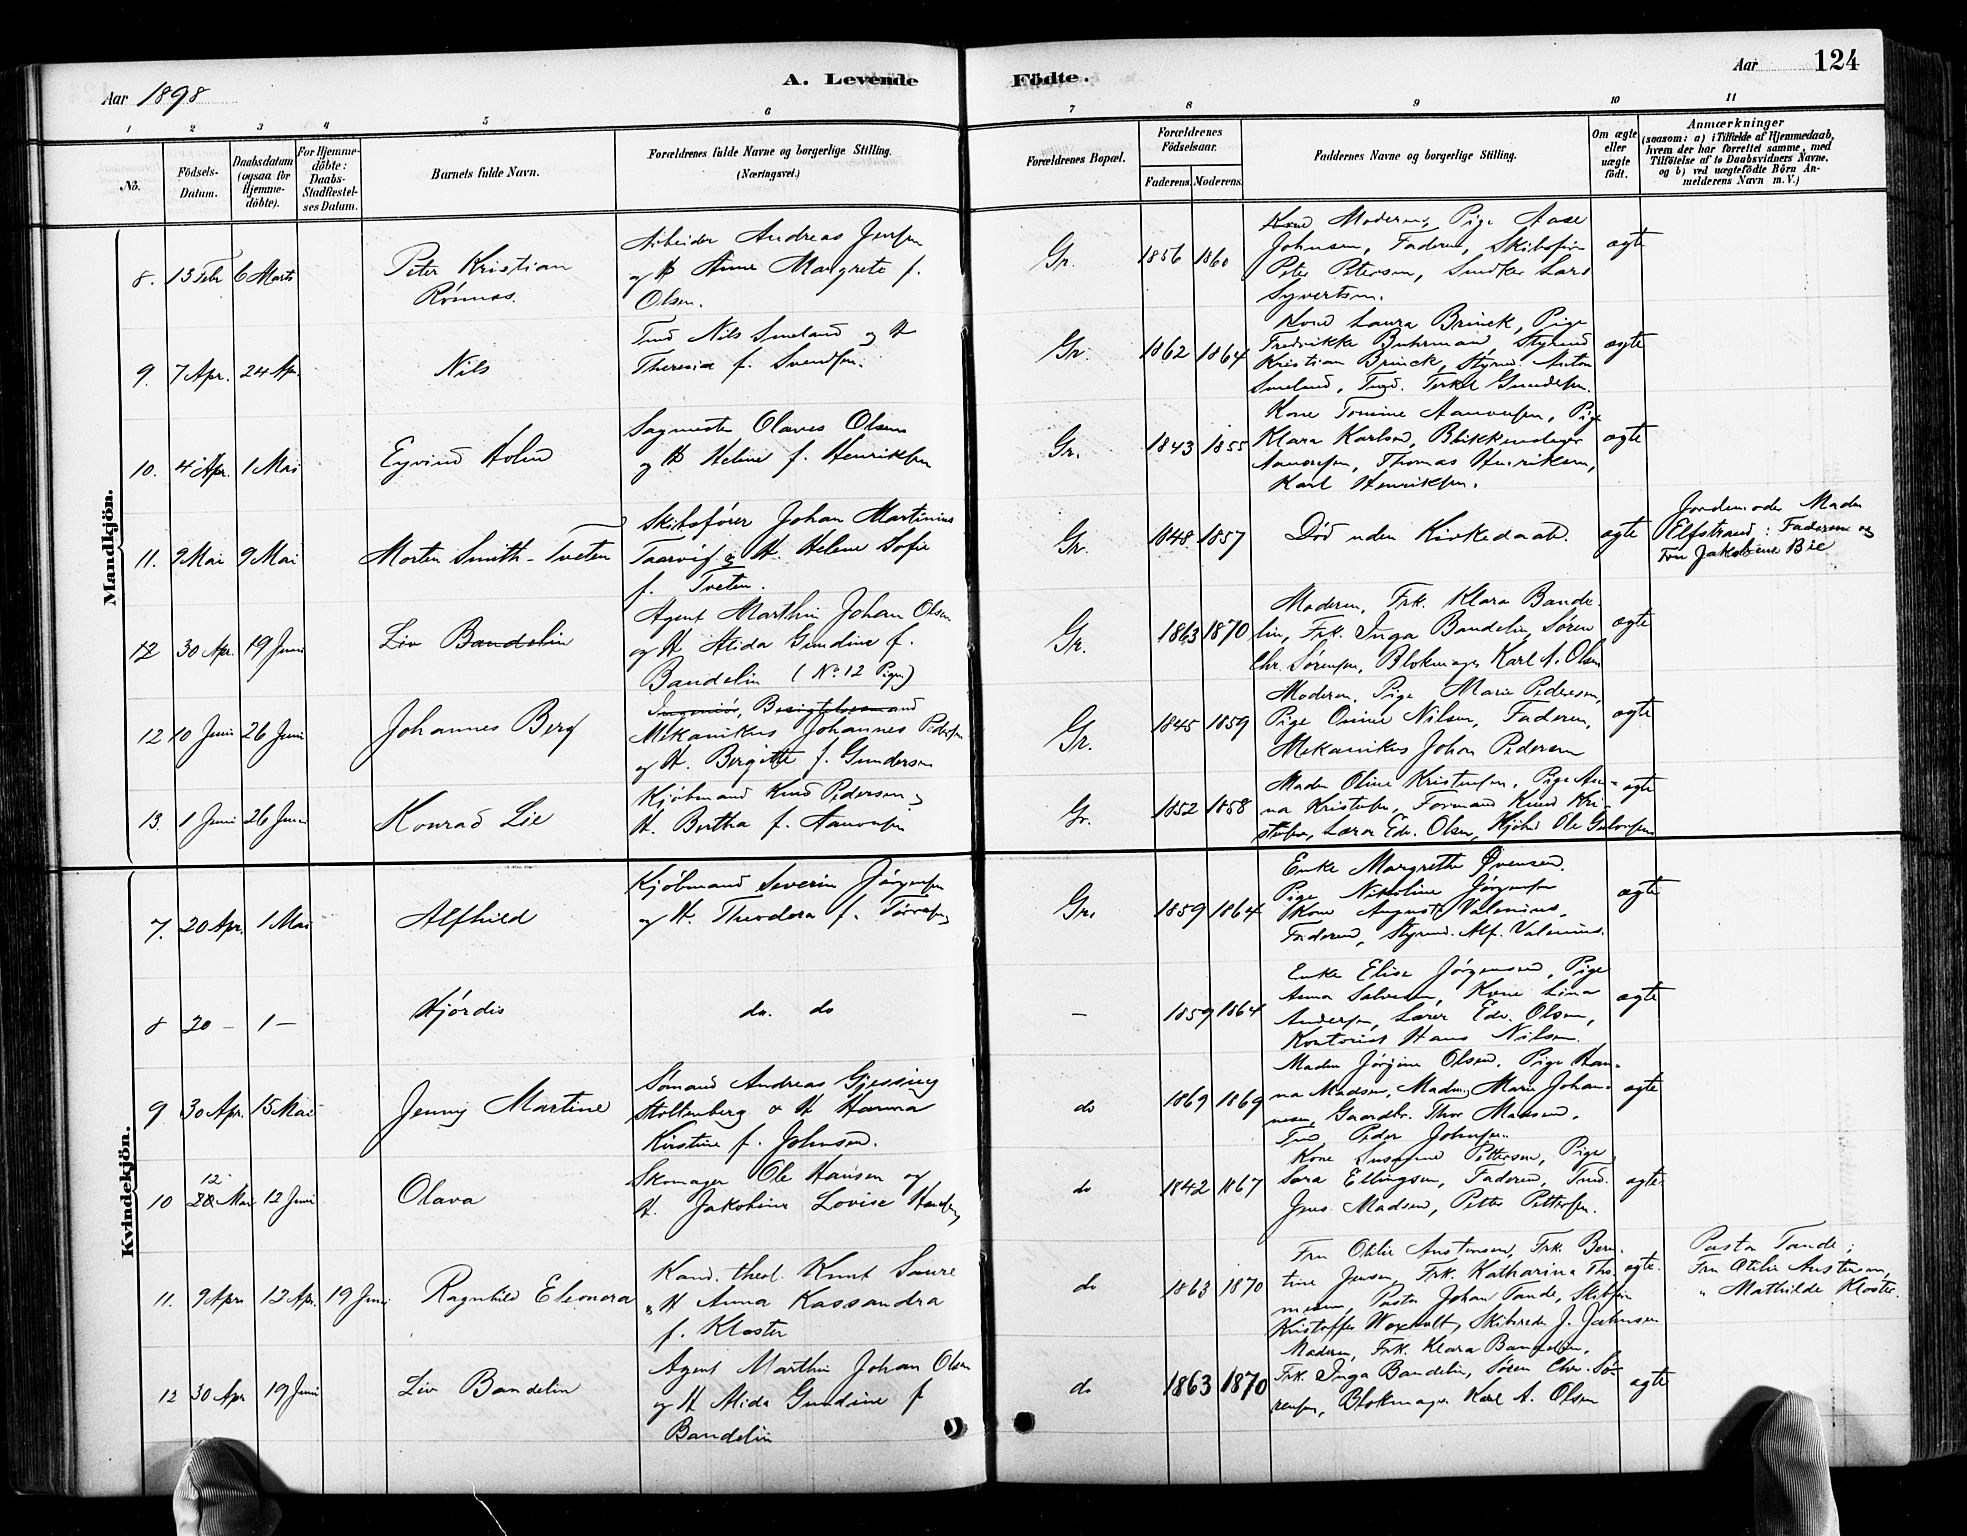 Aar 1898
A. Levende
Födte.
Aar 124
1 2 3 4 5 6 7 8 9 10 11
No.
Födsels-
Datum.
Daabsdatum
(ogsaa for
Hjemme-
döbte).
For Hjemme-
döbte:
Daabs-
Stadfæstel-
ses Datum.
Barnets fulde Navn.
Forældrenes fulde Navne og borgerlige Stilling.
(Næringsvei.)
Forældrenes Bopæl.
Forældrenes
Födselsaar.
Faderens. Moderens.
Faddernes Navne og borgerlige Stilling.
Om ægte
eller
uægte
födt.
Anmærkninger
(saasom: a) i Tilfælde af Hjemmedaab,
hvem der har forrettet samme, med
Tilföielse af to Daabsvidners Navne.
og b) ved uægtefödte Börn An-
melderens Navn m. V.)
Mandkjön.
8. 13 Febr 6 Marts
Peter Kristian
Rönnos.
Arbeider Andreas Jensen
og H Anne Margrete f.
Olsen.
Gr. 1856 1860
Moderen, Pige Aase
Johnsen, Faderen, Skibsför
Peter Petersen, Lars
Syvertsen.
ægte
9. 7 Apr. 24 Ap.
Nils
Tmd Nils Smeland og H
Theresia f. Svendsen.
Gr. 1862 1864
Kone Laura Brinck, Pige
Fredrikke Buhrmand, Styrmd
Kristian Brinck, Styrmd. Anton
Smeland, Tmd. Terkel Gundersen.
ægte
10. 4 Apr. 1 Mai
Eyvind Holm
Sagmester Olaves Olsen
og H Helene f. Henriksen
Gr. 1843 1855
Kone Tomine Aanonsen, Pige
Klara Karlsen, Blikkenslager
Aanonsen, Thomas Henriksen,
Karl Henriksen.
ægte
11. 9 Mai 9 Mai
Morten Smith-Tveten
Skibsförer Johan Martinius
Taarvig & H. Helene Sofie
f. Tveten.
Gr. 1848 1857
Död uden Kirkedaab.
ægte
Jordemoder Madm
Elfstrand: Faderen og
Fru Jakobine Bie
12 30 Apr. 19 Juni
Liv Bandelin
Agent Marthin Johan Olsen
og H Alida Gundine f.
Bandelin (No 12 Piger)
Gr. 1863 1870
Moderen, Frk. Klara Bande-
lin, Frk. Inga Bandelin, Sören
Chr. Sörensen, Blokmager Karl A. Olsen
ægte
12 10 Juni 26 Juni
Johannes Berg
Ingeniör, Besigtelsesmand
Mekanikus Johannes Pedersen
og H. Bergitte f. Gundersen
Gr. 1845 1859
Moderen, Pige Marie Pedersen,
Pige Nilsen, Faderen,
Mekanikus Johan Pedersen
ægte
13. 1 Juni 26 Juni
Konrad Lie
Kjöbmand Knud Pedersen,
H. Bertha f. Aanonsen
Gr. 1852 1858
Madm Oline Kristensen, Pige An-
na Kristensen, Formand Knud Kri-
stensen, Lærer Edv. Olsen, Kjöbmd Ole
ægte
Kvindekjön.
7. 20 Apr. 1 Mai
Alfhild
Kjöbmand Severin Jörgensen
og H. Theodora f. Törresen
Gr. 1859 1864
Enke Margrethe Övensen.
Pige Nikoline Jörgensen
Kone Augusta Valenius.
Faderen, Styrmd. Alf. Valenius.
ægte
8 20 – 1 –
Hjördis
do. do
– 1859 1864
Enke Elise Jörgensen, Pige
Anna Salvesen, Kone Lina
Andersen, Lærer Edv. Olsen,
Kontorist Hans Nilsen.
ægte
9 30 Apr. 15 Mai
Jenny Martine
Sömand Andreas Gjessing
Stoltenberg & H Hanna
Kirstine f. Johnsen.
do 1869 1869
Madm Jörgine Olsen. Pige Han-
na Madsen, Madm. Marie Johan-
nesen, Gaardbr. Thor Madsen,
Tmd. Peder Johnsen.
ægte
10 12
28 Mai 12 Juni
Olava
Skomager Ole Hansen og
H. Jakobine Lovise Hansen
do 1842 1867
Kone Susanne Pettersen, Pige
Sara Ellingsen, Faderen, Tmd.
Jens Madsen, Petter Pettersen.
ægte.
11. 9 Apr 12 Ap. 19 Juni
Ragnhild Eleonora
Kand. theol. Knut Saure
& H Anna Kassandra
f. Kloster
do 1863 1870
Fru Otilie Austensen, Frk. Bern-
tine Jensen, Frk. Katharina Tho-
mesen, Pastor Johan Tande, Skibsför
Kristoffer Woxholt, Skibsreder J. Jahnsen
ægte.
Pastor Tande;
Fru Otilie Austensen,
" Mathilde Kloster.
12 30 Apr 19 Juni
Liv Bandelin
Agent Marthin Johan Olsen
og H Alida Gundine f
Bandelin
do 1863 1870
Moderen, Frk. Klara Bandelin,
Frk. Inga Bandelin, Sören Chr. Sö-
rensen, Blokmager Karl A. Olsen
ægte